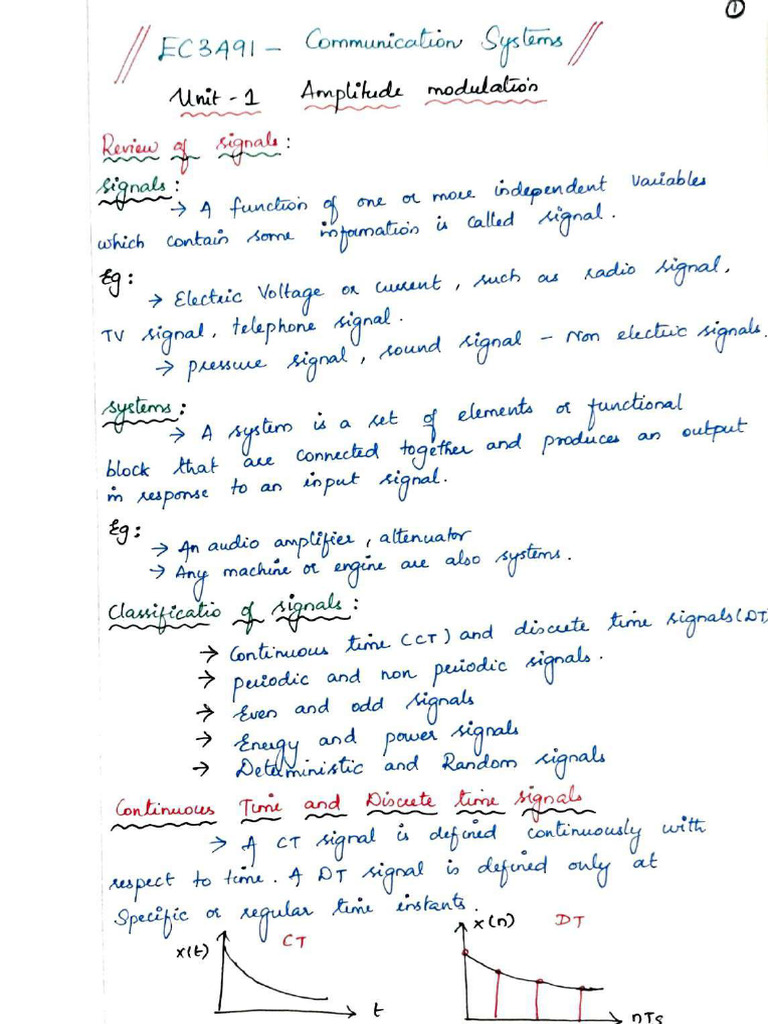 1
EC3A91 - Communication Systems
Unit - 1 Amplitude modulation
Review of signals:
Signals:
→ A function of one or more independent variables
which contain some information is called signal.
Eg:
→ Electric Voltage or current, such as radio signal,
TV signal, telephone signal.
→ pressure signal, sound signal - Non electric signals.
systems:
→ A system is a set of elements or functional
block that are connected together and produces an output
in response to an input signal.
Eg:
→ An audio amplifier, attenuator
→ Any machine or engine are also systems.
Classificatio of signals:
→ Continuous time (CT) and discrete time signals (DT
→ periodic and non periodic signals.
→ Even and odd signals
→ Energy and power signals
→ Deterministic and Random signals
Continuous Time and Discrete time signals
→ A CT signal is defined continuously with
respect to time. A DT signal is defined only at
Specific or regular time instants.
x(t) CT t
x(n) DT nTs